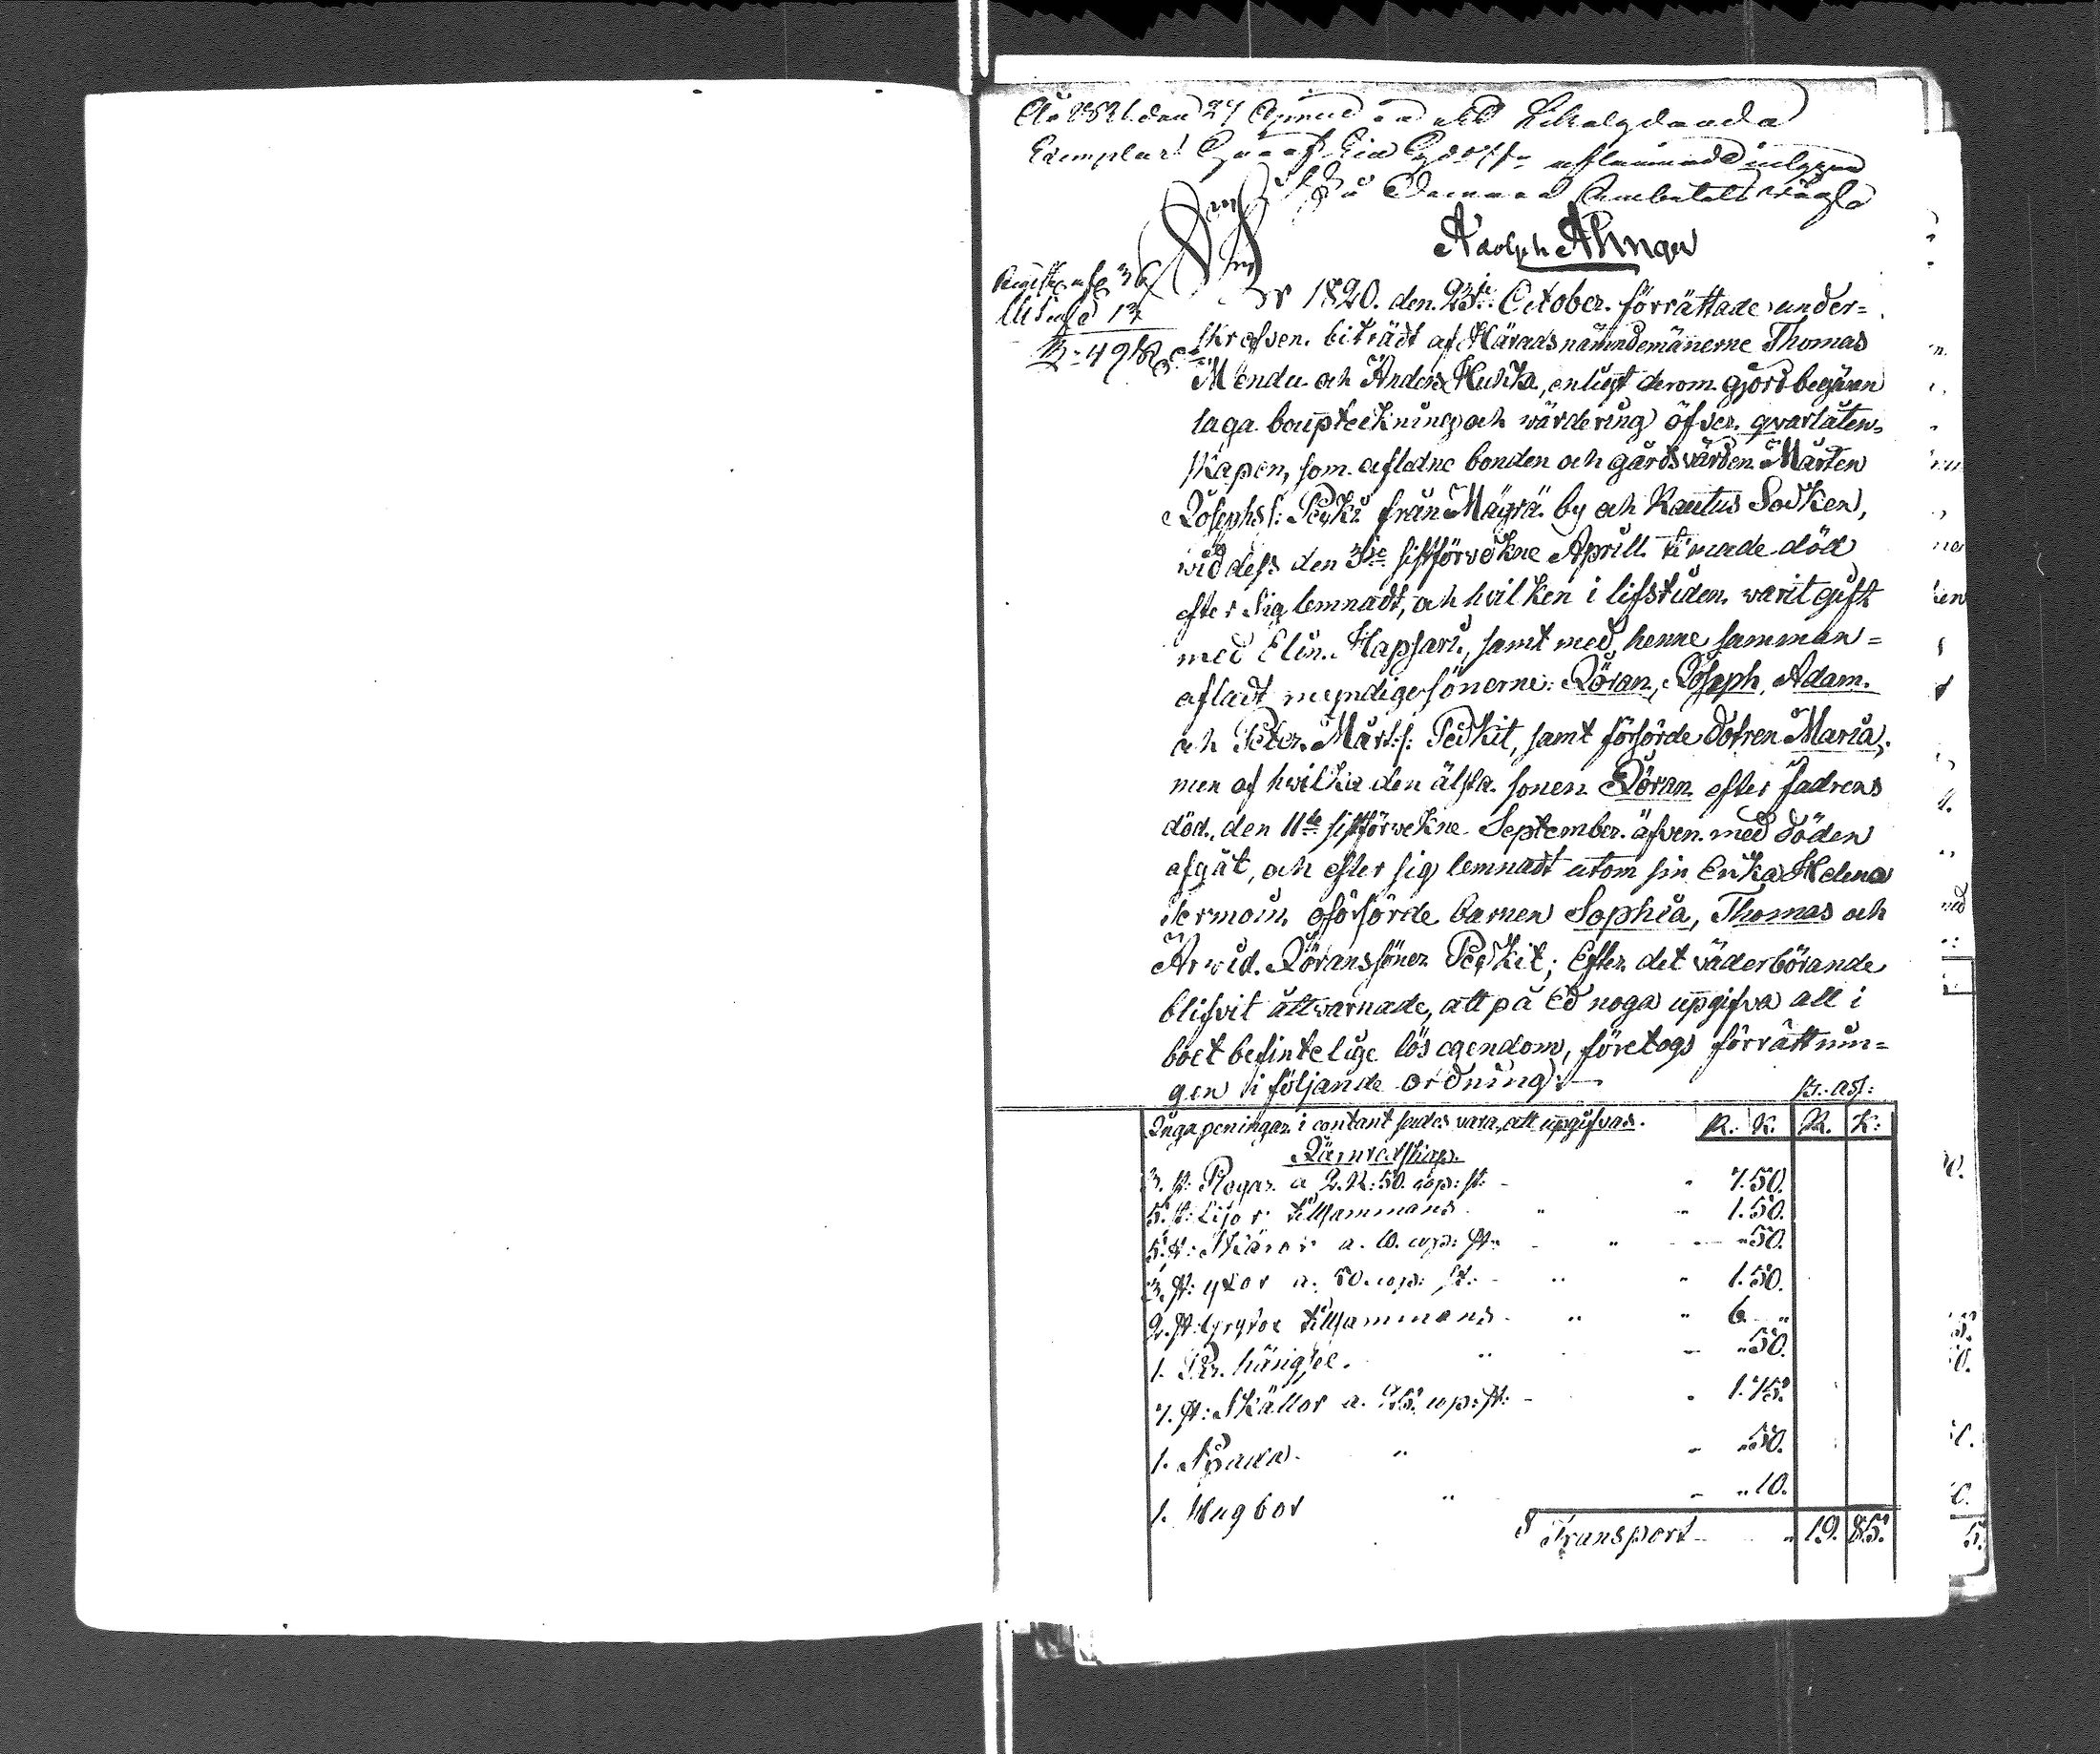 Exemplar
Embetets wägla
Adolph Ahnger
År 1820. den 23de October. förrättade under=
skrefven. biträdt af Häradsnämndemännerne Thomas
Mendu och Anders Hukka, enligt derom gjord begäran
laga boupteckning och wärdering öfver qvarlåten-
skapen, som afledne bonden och gårdsvärden Mårten
Josephs s: Peuki från Mägrä by och Rautus Sockn,
wid dess den 3de sistförvekne Aprill timade död
efter sig lemnadt, och hvilken i lifstiden varit gift
med Elin Hapsari, samt med henne samman=
afladt myndige sönerne: Jöran, Joseph, Adam.
och Peter Mårt: s: Peukit, samt försörde dotren Maria;
men af hvilka den älsta sonen Jöran efter fadrens
död, den 11te sistförvekne September äfven med döden
afgåt, och efter sig lemnadt utom sin Enka Helena
Termoin, oförsörde barnen Sophia, Thomas och
Arvid Jöranssöner Peukit; Efter det väderbörande
blifvit åtvarnade, att på Ed noga upgifva all i
boet befintelige lös egendom, företogs förrättnin=
gen i följande ordning:
R: as:
Inga peningar i contant sades vara, att upgifvas. R. K. R. K:
Järnredskap.
3. st: Plogar a 2. R: 50. cop: st: 7. 50.
5. st: Lijor tillsammans 1. 50.
5. st: Skäror a. 10. cop: st: 50.
3. st: yxor a. 50. cop: st: 1. 50.
2. st: Grytor tillsammans 6. "
1. hänglee. 50.
7. st: Skällor a. 25. cop: st: 1. 75.
1. Spada 50.
1. Hugbor 10.
Transport 19. 85.